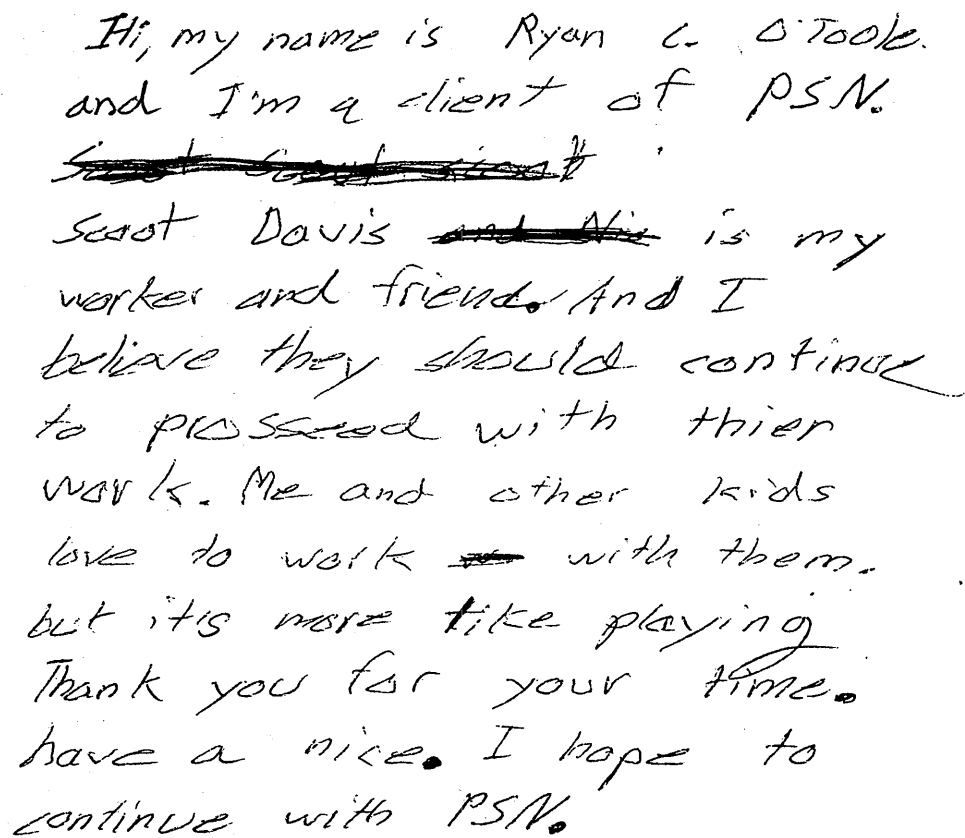 Hi, my name is Ryan C. O'Toole.
and I'm a client of PSN.
Scoot Davis is my
worker and friend. And I
believe they should continue
to prosseed with thier
work. Me and other kids
love to work with them.
but it's more like playing
Thank you for your time.
have a nice. I hope to
continue with PSN.